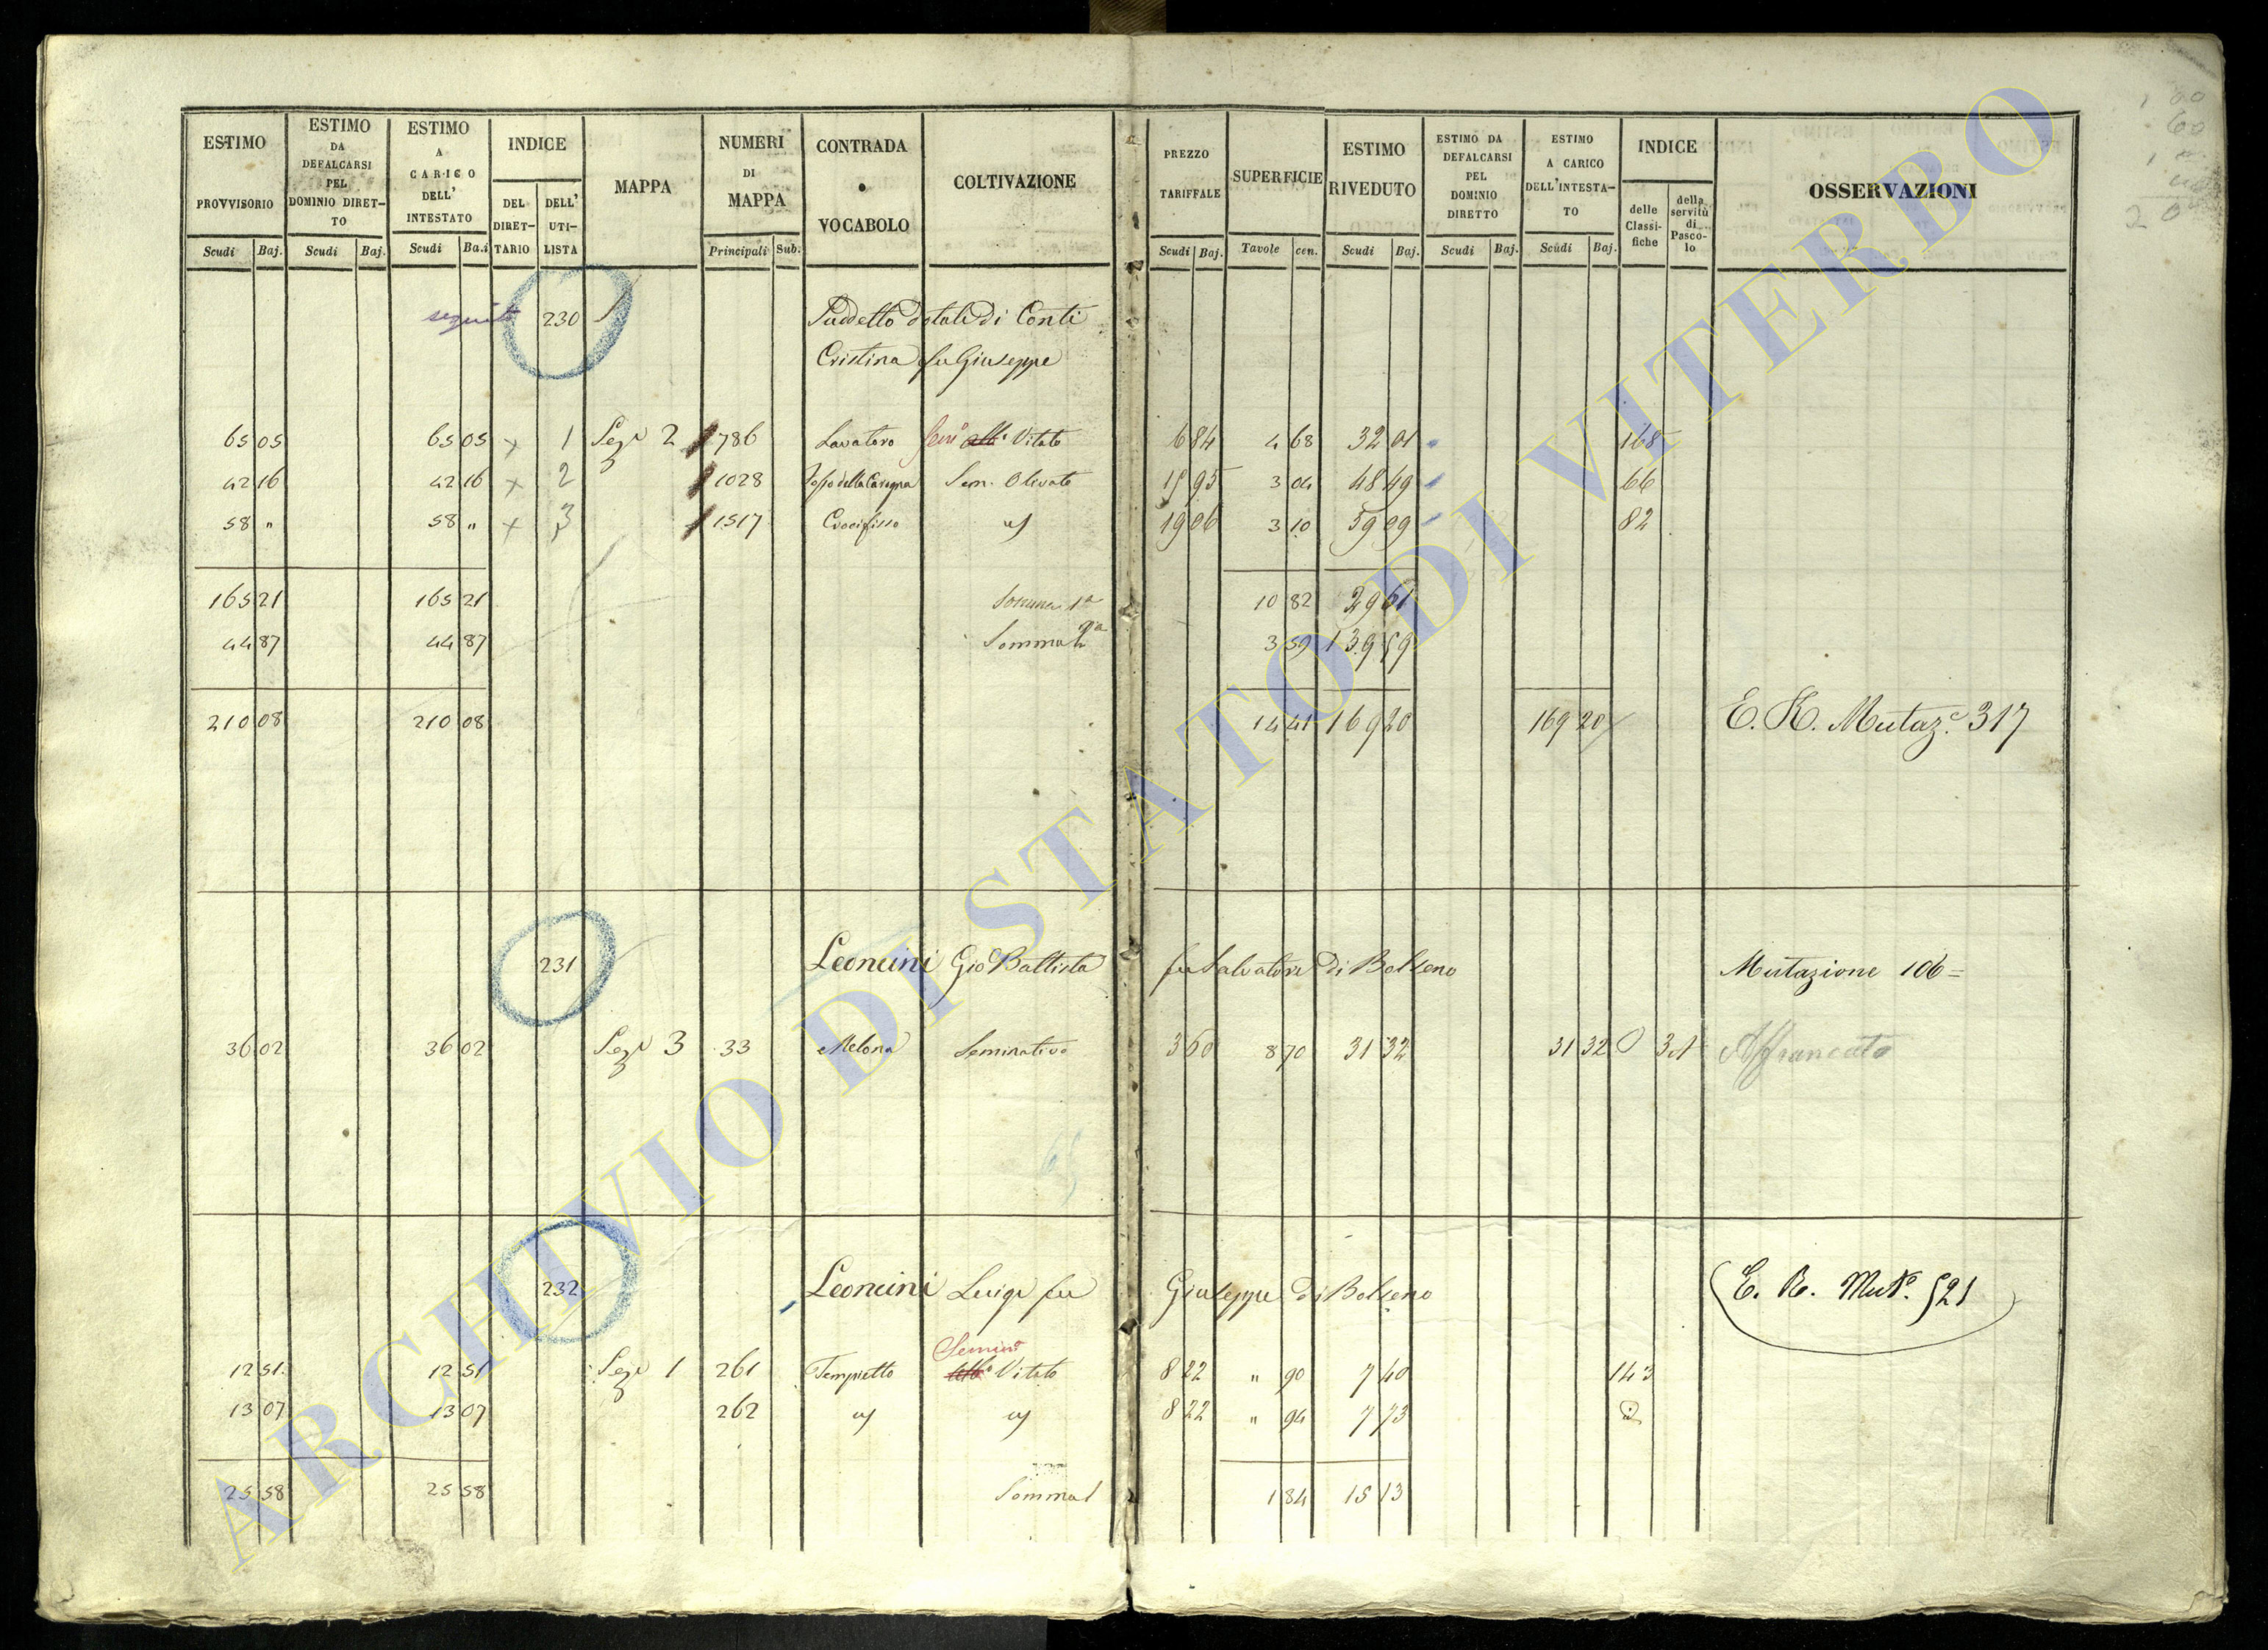 ESTIMO PROVVISORIO Scudi Baj.
ESTIMO DA DEFALCARSI PEL DOMINIO DIRET- TO Scudi Baj.
ESTIMO A CARICO DELL' INTESTATO Scudi Ba.i
INDICE DEL DIRET- TARIO DELL' UTI- LISTA
MAPPA
NUMERI DI MAPPA Principali Sub.
CONTRADA o VOCABOLO
COLTIVAZIONE
PREZZO TARIFFALE Scudi Baj.
SUPERFICIE Tavole cen.
ESTIMO RIVEDUTO Scudi Baj.
ESTIMO DA DEFALCARSI PEL DOMINIO DIRETTO Scudi Baj.
ESTIMO A CARICO DELL'INTESTA- TO Scudi Baj.
INDICE delle Classi- fiche della servitù di Pasco- lo
OSSERVAZIONI
seguito 230 Suddetto dotale di Conti
Cristina fu Giuseppe
65 05 65 05 x 1 Sez.e 2 786 Lavatoro Sem.o Vitato 6 84 4 68 32 01 168
42 16 42 16 x 2 1028 Fosso della Carogna Sem. Olivato 15 95 3 04 48 49 66
58 " 58 " x 3 1517 Crocifisso id 19 06 3 10 59 09 82
165 21 165 21 Somma 1a 10 82
44 87 44 87 Somma 2a 3 59 139 59
210 08 210 08 14 41 169 20 169 20 E. R. Mutaz.e 317
231 Leoncini Gio Battista fu Salvatore di Bolseno Mutazione 106=
36 02 36 02 Sez.e 3 33 Melona Seminativo 3 60 8 70 31 32 31 32 Affrancato
232 Leoncini Luigi fu Giuseppe di Bolseno E. R. Mut.e 521
Semin.o
12 51 12 51 Sez.e 1 261 Tempietto Alb.o Vitato 8 22 " 90 7 40 143
13 07 13 07 262 id id 8 22 " 94 7 73
25 58 25 58 Somma 1 84 15 13
ARCHIVIO DI STATO DI VITERBO